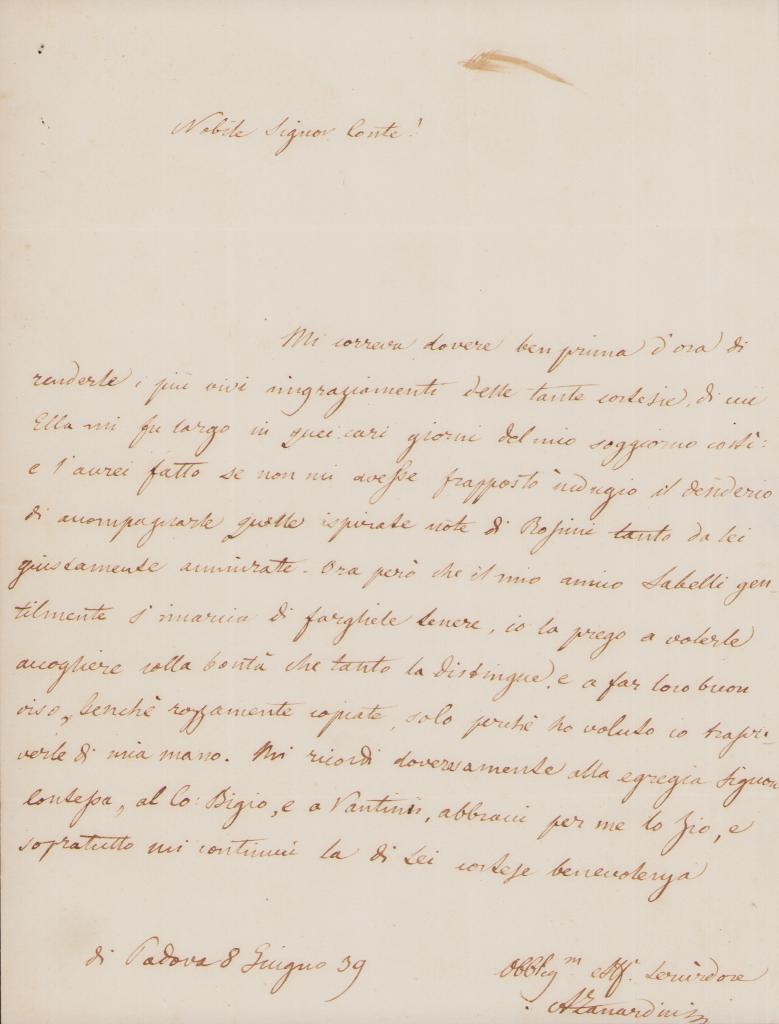 Nobile Signor Conte!
Mi correva dovere ben prima d'ora di
renderle i più vivi ringraziamenti delle tante cortesie, di cui
Ella mi fu largo in quei cari giorni del mio soggiorno costì:
e l'avrei fatto se non mi avesse frapposto indugio il desiderio
di accompagnarle quelle ispirate note di Rossini tanto da lei
giustamente ammirate. Ora però che il mio amico Labelli gen-
tilmente s'incarica di farghele tenere, io la prego a volerle
accogliere colla bontà che tanto la distingue, e a far loro buon
viso, benchè rozzamente copiate, solo perchè ho voluto io trascri-
verle di mia mano. Mi ricordi doverosamente alla egregia Signora
Contessa, al Co: Bigio, e a Vantini, abbracci per me lo Zio, e
sopratutto mi continui la di Lei cortese benevolenza
di Padova 8 Giugno 39
Obblig.m ed Aff. Servidore
A Zanardini